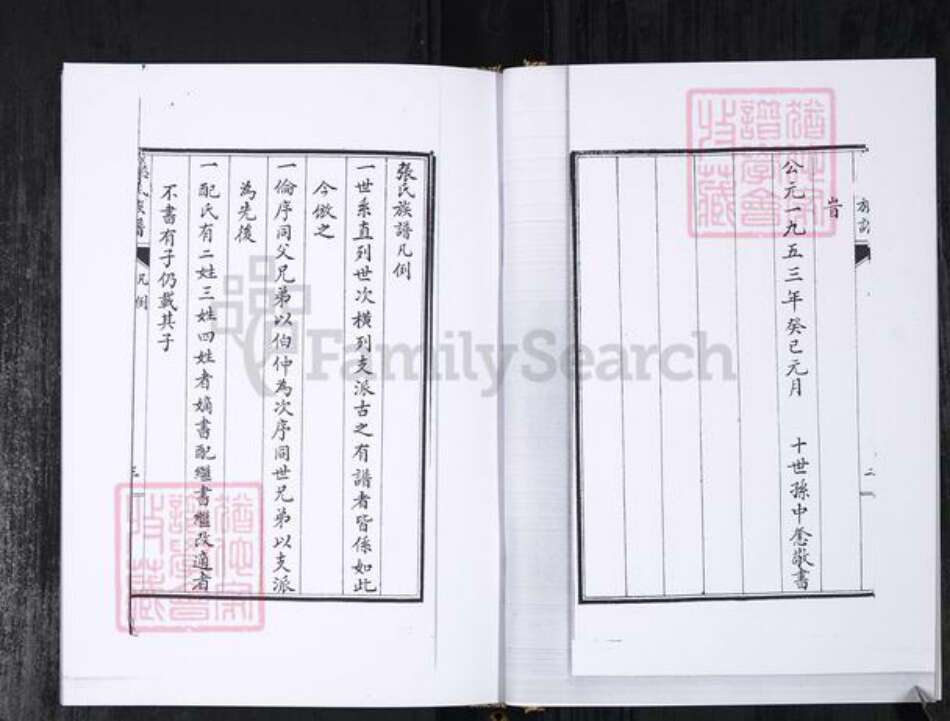 旹
公元一九五三年癸巳元月　十世孫中憲敬書
二
張氏族譜凡例
一世系直列世次橫列支派古之有譜者皆係如此
今倣之
一倫序同父兄弟以伯仲為次序同世兄弟以支派
為先後
一配氏有二姓三姓四姓者嫡書配繼書繼改適者
不書有子仍載其子
氏族譜
凡例
三
譜學會
收藏
譜學會
收藏
FamilySearch